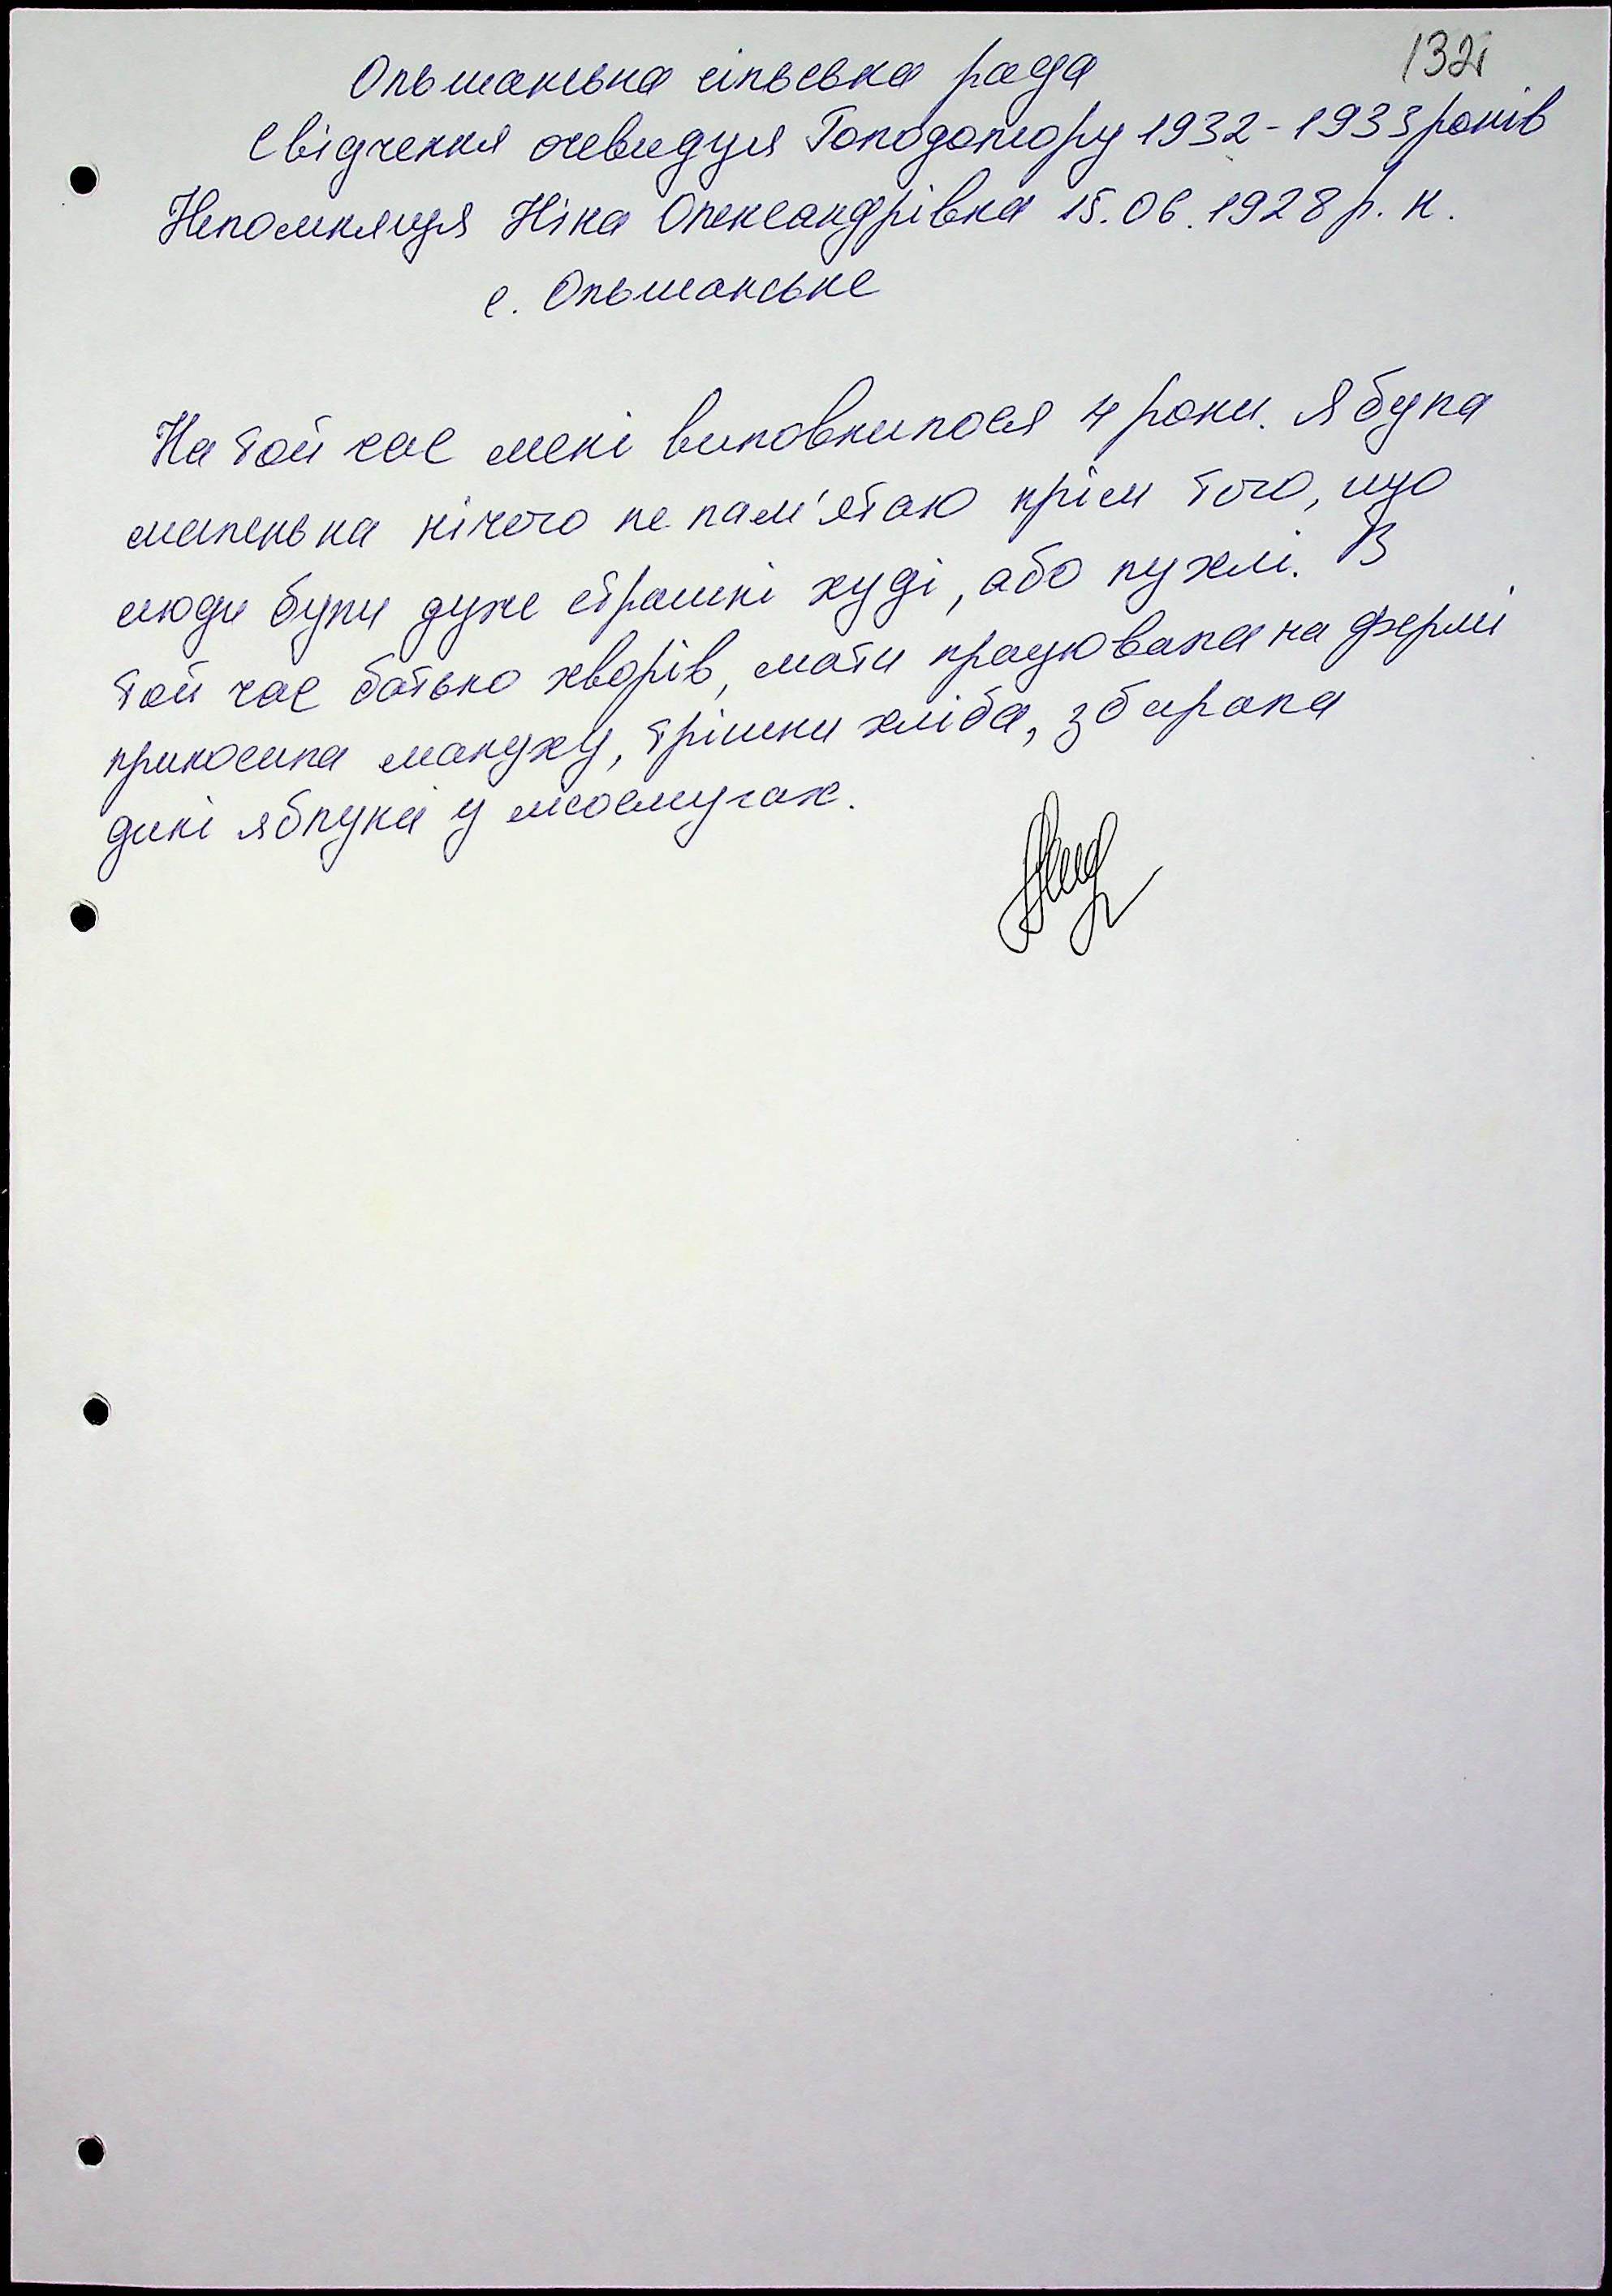 132
Ольшанська сільська рада
Свідчення очевидця Голодомору 1932-1933 років
Непомняща Ніна Олександрівна 15.06.1928 р. н.
с. Ольшанське
На той час мені виповнилося 4 роки. Я була
маленька нічого не пам'ятаю крім того, що
люди були дуже страшні худі, або пухлі. В
той час батько хворів, мати працювала на фермі
приносила макуху, трішки хліба, збирала
дикі яблука у лісосмугах.